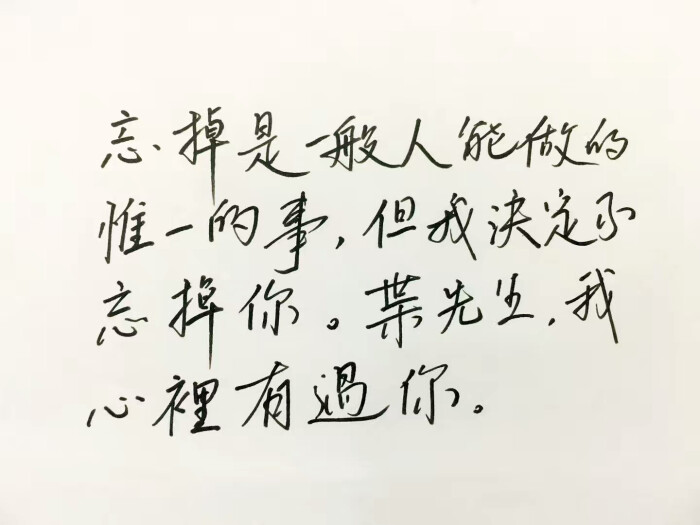 忘掉是一般人能做的
惟一的事,但我決定不
忘掉你。葉先生,我
心裡有過你。